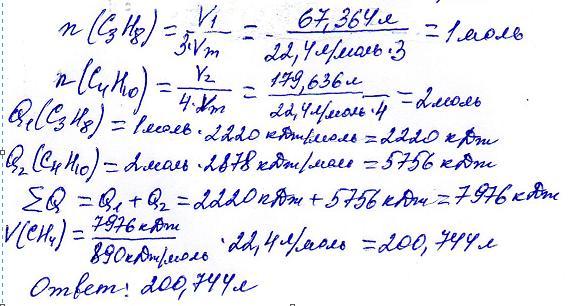 n(C3H8) = V1 / 3·Vm = 67,364л / 22,4л/моль·3 = 1моль
n(C4H10) = V2 / 4·Vm = 179,636л / 22,4л/моль·4 = 2моль
Q1(C3H8) = 1моль·2220 кДж/моль = 2220 кДж
Q2(C4H10) = 2моль·2878 кДж/моль = 5756 кДж
ΣQ = Q1 + Q2 = 2220 кДж + 5756 кДж = 7976 кДж
V(CH4) = 7976 кДж / 890кДж/моль · 22,4л/моль = 200,744л
Ответ: 200,744л